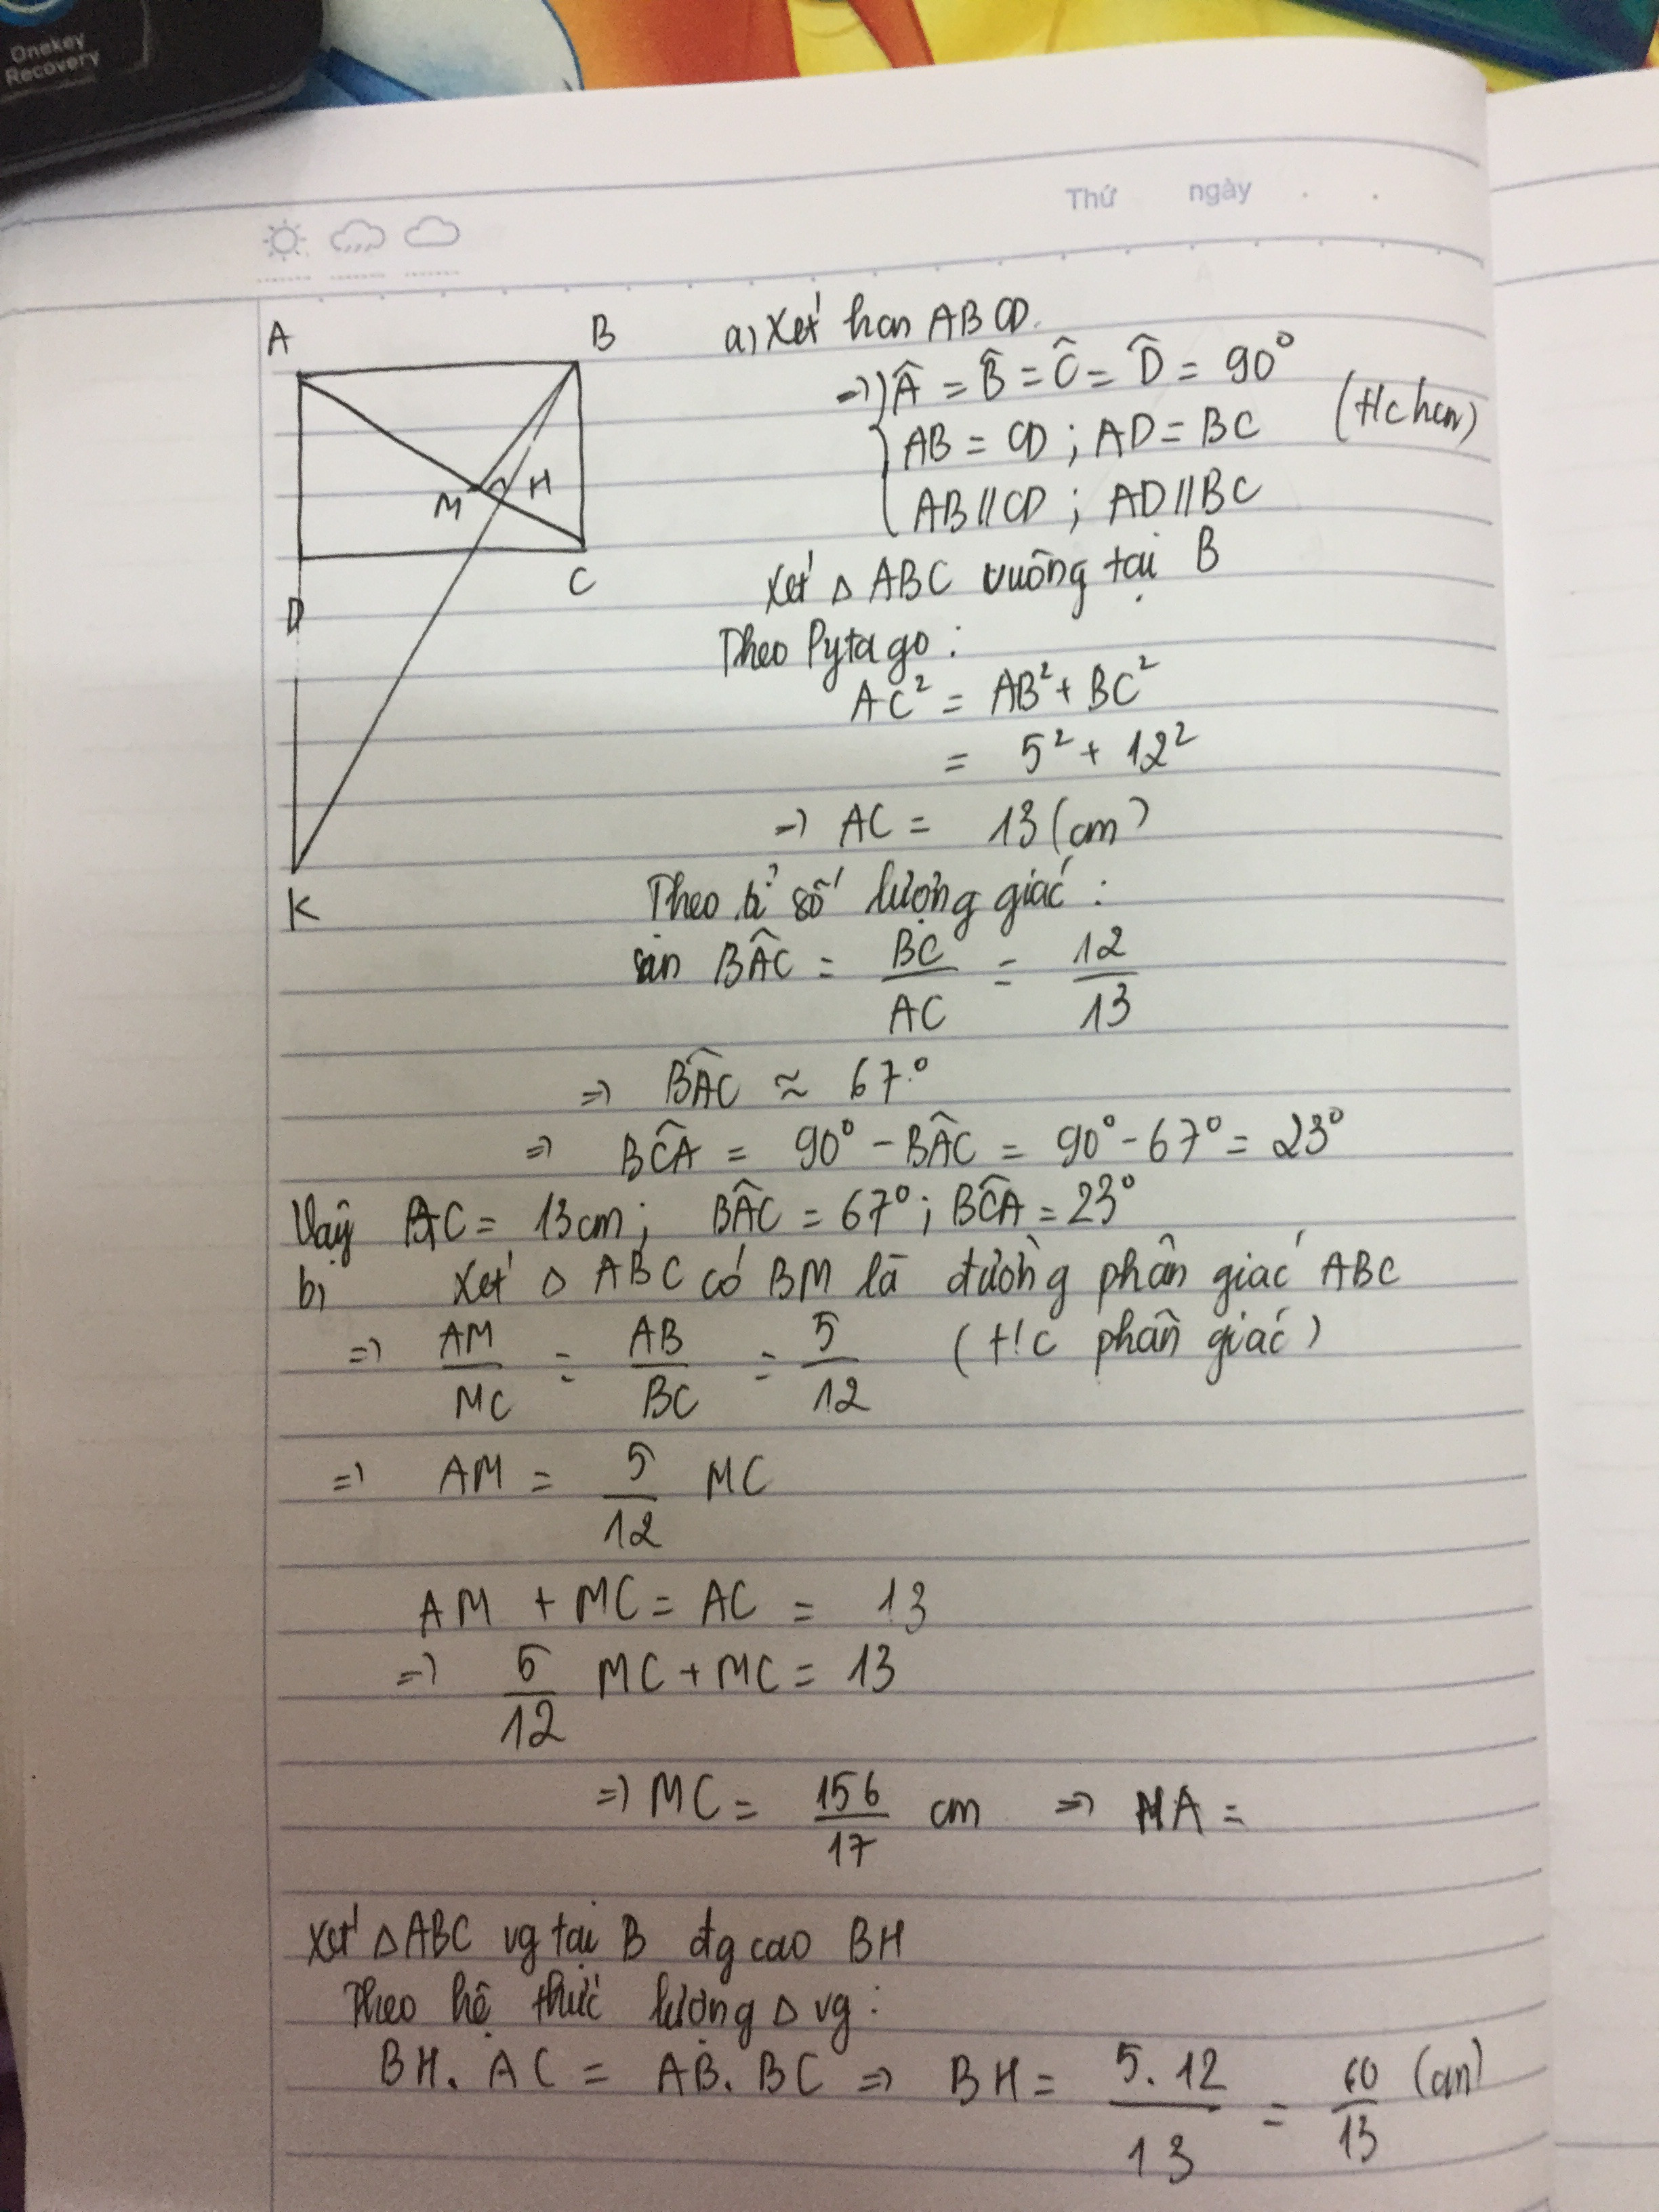 Onekey
Recovery
Thứ ngày
A
B
M
H
D
C
K
a) Xét hcn ABCD.
=> { Â = B̂ = Ĉ = D̂ = 90°
AB = CD ; AD = BC (t/c hcn)
AB // CD ; AD // BC
Xét Δ ABC vuông tại B
Theo Pytago :
AC² = AB² + BC²
= 5² + 12²
=> AC = 13 (cm)
Theo tỉ số lượng giác :
sin BÂC = BC/AC = 12/13
=> BÂC ≈ 67°
=> BĈA = 90° - BÂC = 90° - 67° = 23°
Vậy AC = 13cm ; BÂC = 67° ; BĈA = 23°
b) Xét Δ ABC có BM là đường phân giác ABC
=> AM/MC = AB/BC = 5/12 (t/c phân giác)
=> AM = 5/12 MC
AM + MC = AC = 13
=> 5/12 MC + MC = 13
=> MC = 156/17 cm => MA =
Xét Δ ABC vg tại B đg cao BH
Theo hệ thức lượng Δ vg :
BH . AC = AB . BC => BH = 5.12/13 = 60/13 (cm)